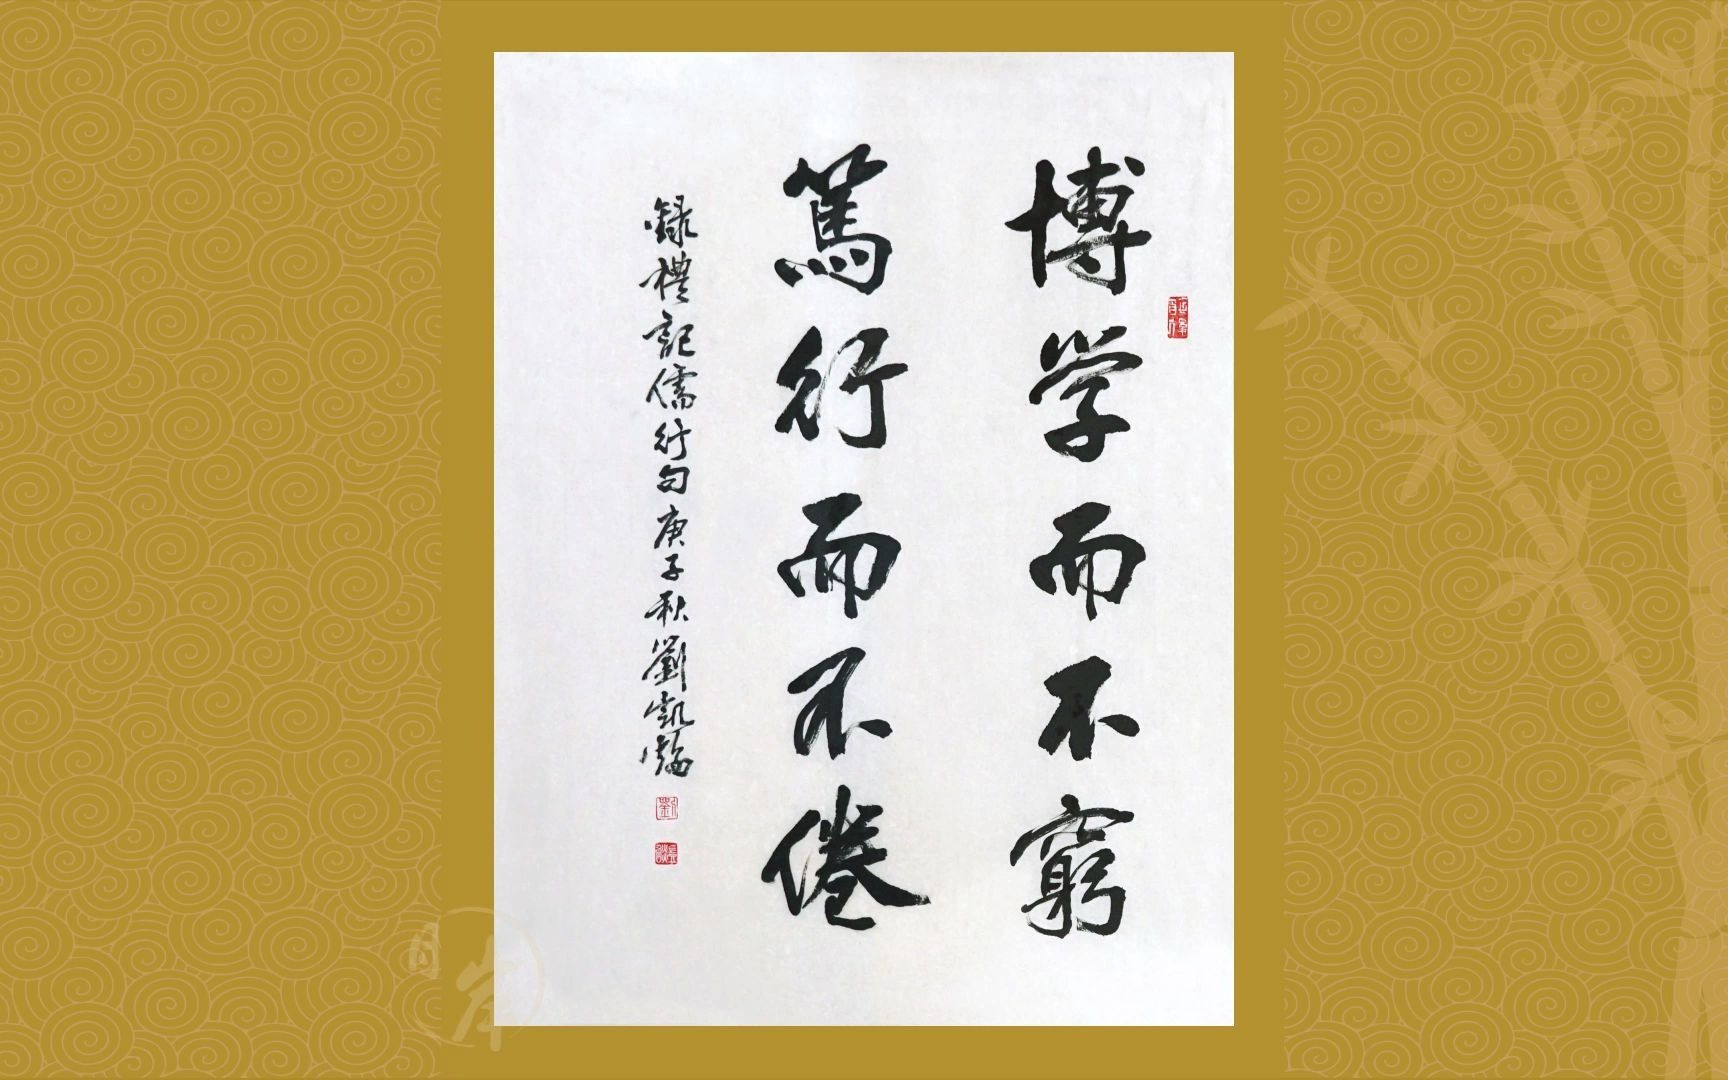 博学而不窮
篤行而不倦
錄禮記儒行句庚子秋劉凱
劉